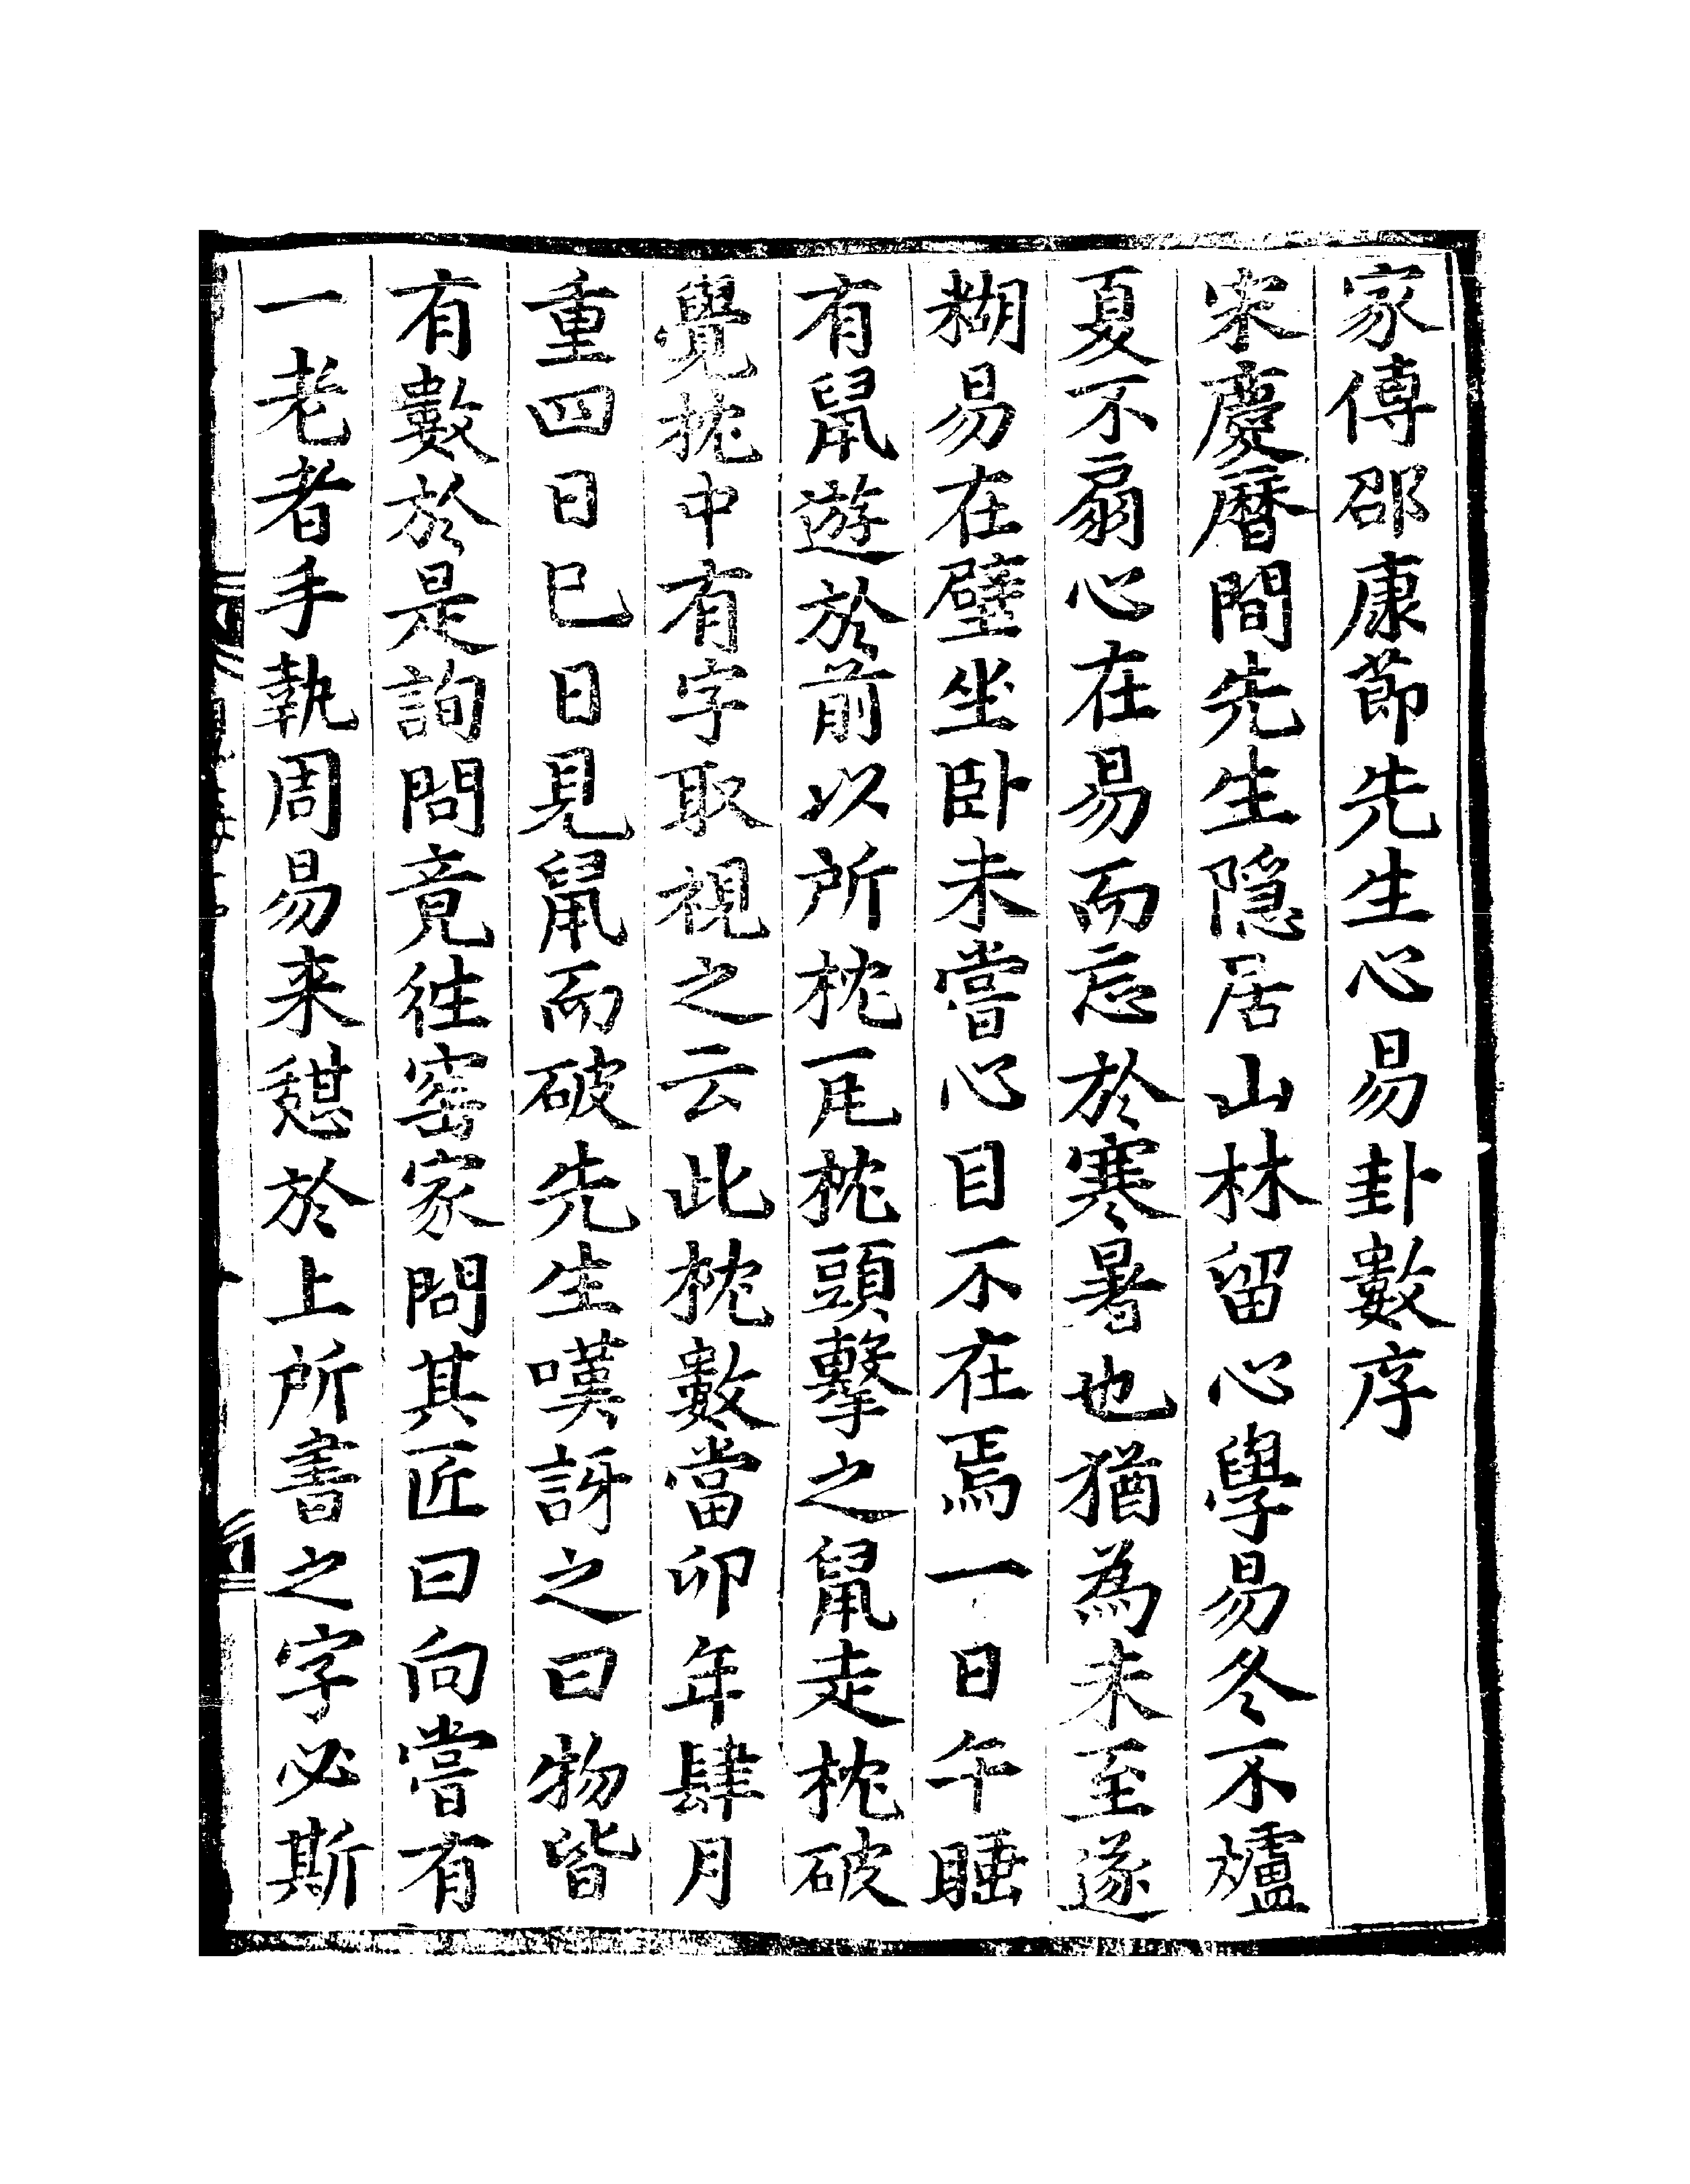 家傳邵康節先生心易卦數序
宋慶曆間先生隱居山林留心學易冬不爐
夏不扇心在易而忘於寒暑也猶為未至遂
糊易在壁坐卧未嘗心目不在焉一日午睡
有鼠遊於前以所枕瓦枕頭擊之鼠走枕破
覺枕中有字取視之云此枕數當卯年肆月
重四日巳日見鼠而破先生嘆訝之曰物皆
有數於是詢問竟徃窰家問其匠曰向嘗有
一老者手執周易来憇於上所書之字必斯